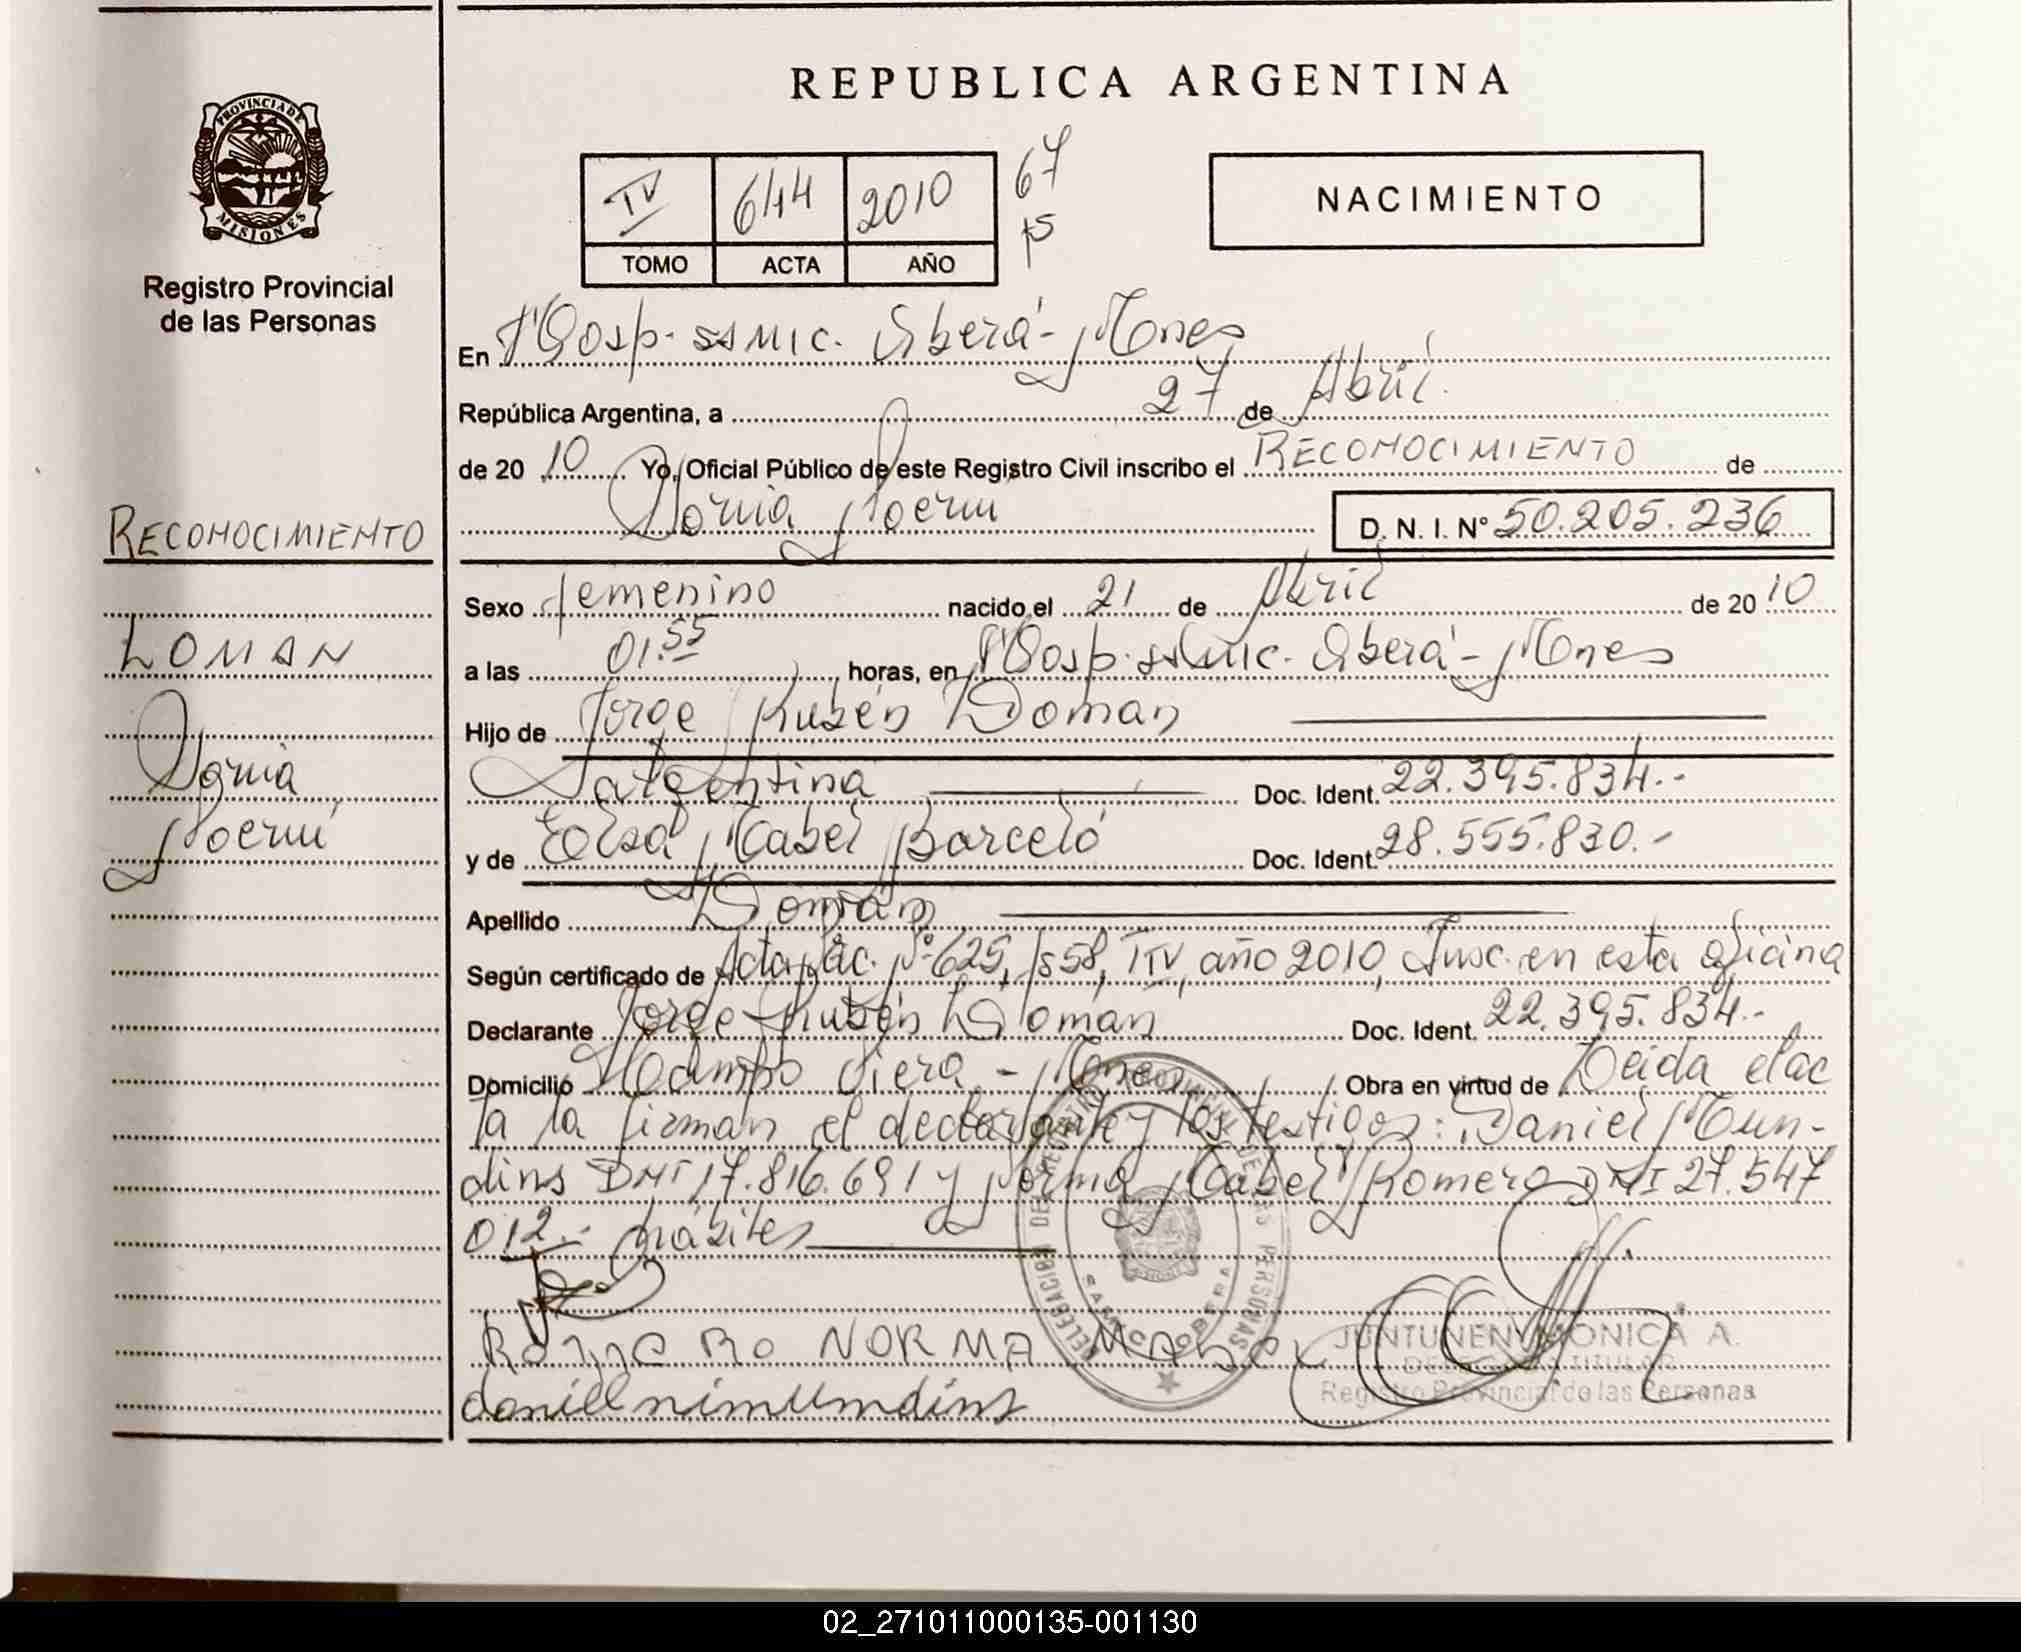 REPUBLICA ARGENTINA
PROVINCIA DE MISIONES
Registro Provincial
de las Personas
IV 644 2010
TOMO ACTA AÑO
67
NACIMIENTO
En Hosp. ssmic. Oberá - Mnes
República Argentina, a 27 de Abril
de 2010 Yo, Oficial Público de este Registro Civil inscribo el RECONOCIMIENTO de
Noemí D. N. I. Nº 50.205.236
RECONOCIMIENTO
LOMAN
Noemí
Sexo femenino nacido el 21 de Abril de 2010
a las 01.55 horas, en Hosp. ssmic. Oberá - Mnes
Hijo de Jorge Rubén Loman
Argentina Doc. Ident. 22.395.834.-
y de Elsa Mabel Barceló Doc. Ident. 28.555.830.-
Apellido Loman
Según certificado de Acta Nac. Nº 625, fs 58, T IV, año 2010, Insc. en esta oficina
Declarante Jorge Rubén Loman Doc. Ident. 22.395.834.-
Domicilio Campo Viera - Mnes Obra en virtud de Leida el ac
ta la firman el declarante y los testigos: Daniel Mun-
dins DNI 17.816.691 y Norma Mabel Romero DNI 27.547
012.- hábiles
ROMERO NORMA MABEL
JUNTUNEN MONICA A.
DELEGADA TITULAR
Registro Provincial de las Personas